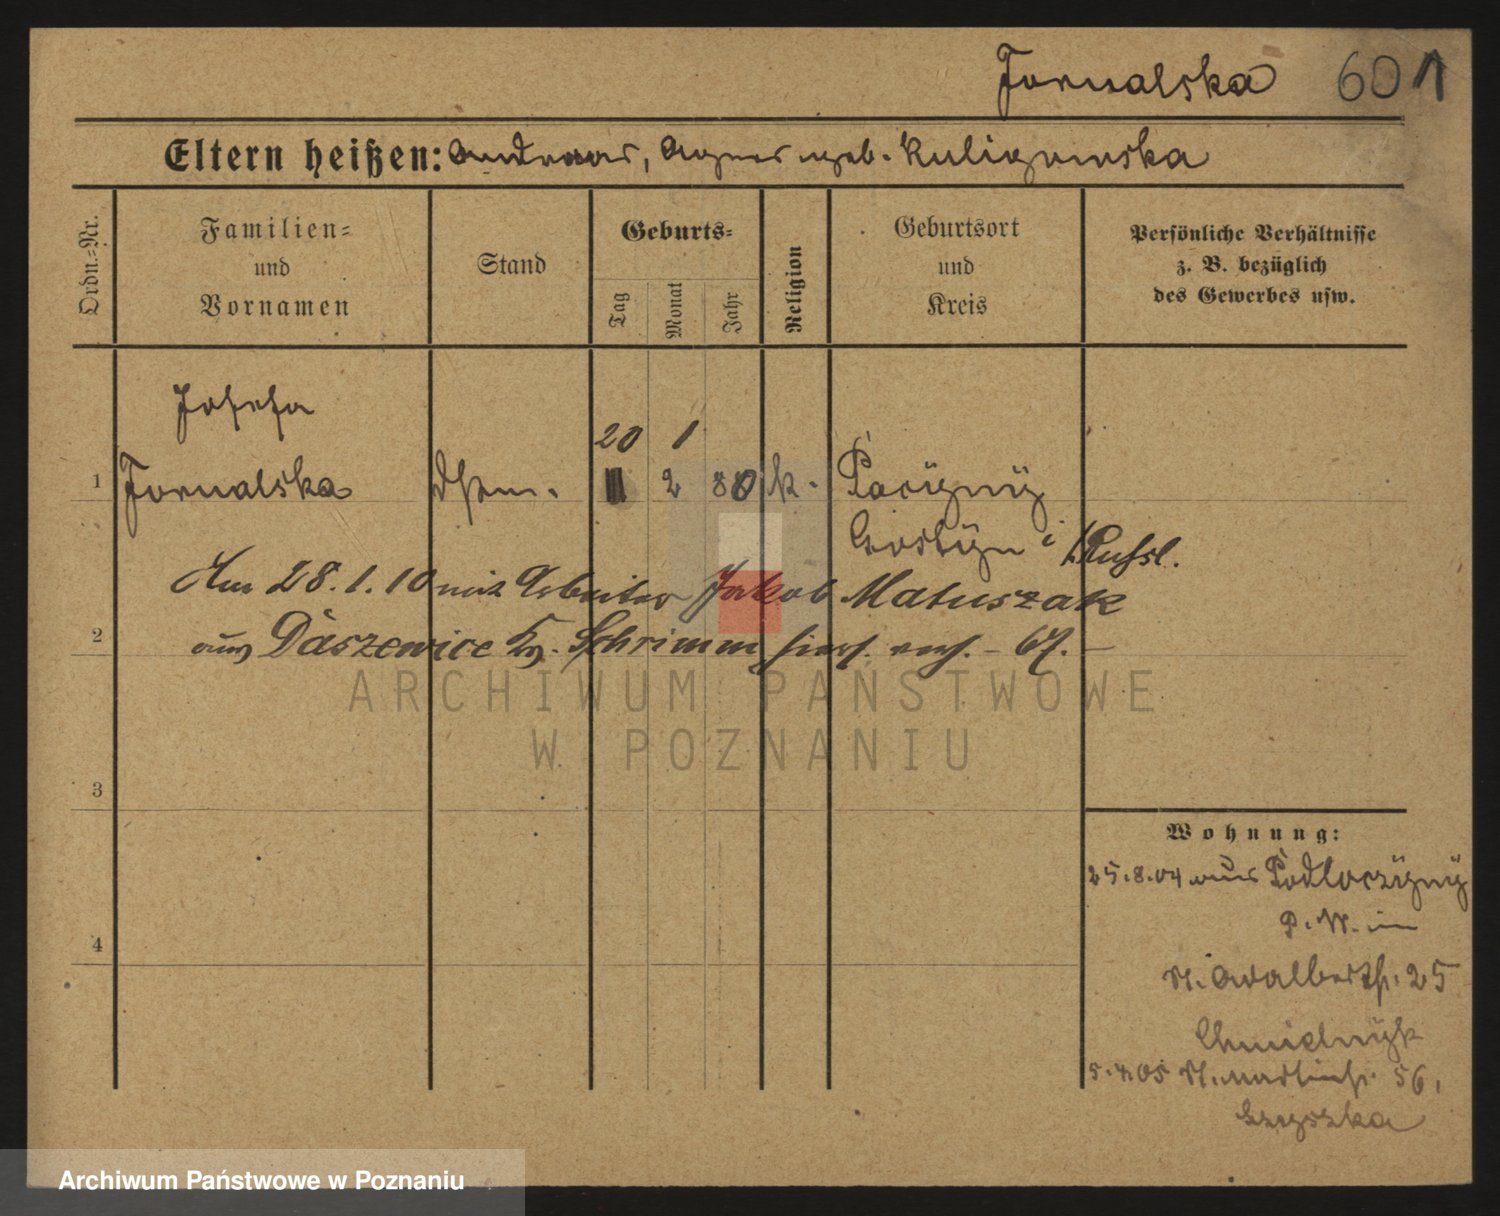 Fornalska 601
Eltern heißen: Andreas, Agnes geb. Kuligowska
Ordn.-Nr.
Familien-
und
Vornamen
Stand
Geburts-
Tag
Monat
Jahr
Religion
Geburtsort
und
Kreis
Persönliche Verhältnisse
z. B. bezüglich
des Gewerbes usw.
Josefa
20 1
1 Fornalska 2 80 k.
Gostyn i/Russl.
Am 28.1.10 mit Arbeiter Jakob Matuszak
aus Daszewice Kr. Schrimm hier verh.
2
3
4
Wohnung:
25.8.04 aus
P. W. in
St. Adalbertstr. 25
Chmielnyk
5.4.05 St. Martinstr. 56,
ARCHIWUM PAŃSTWOWE
W POZNANIU
Archiwum Państwowe w Poznaniu